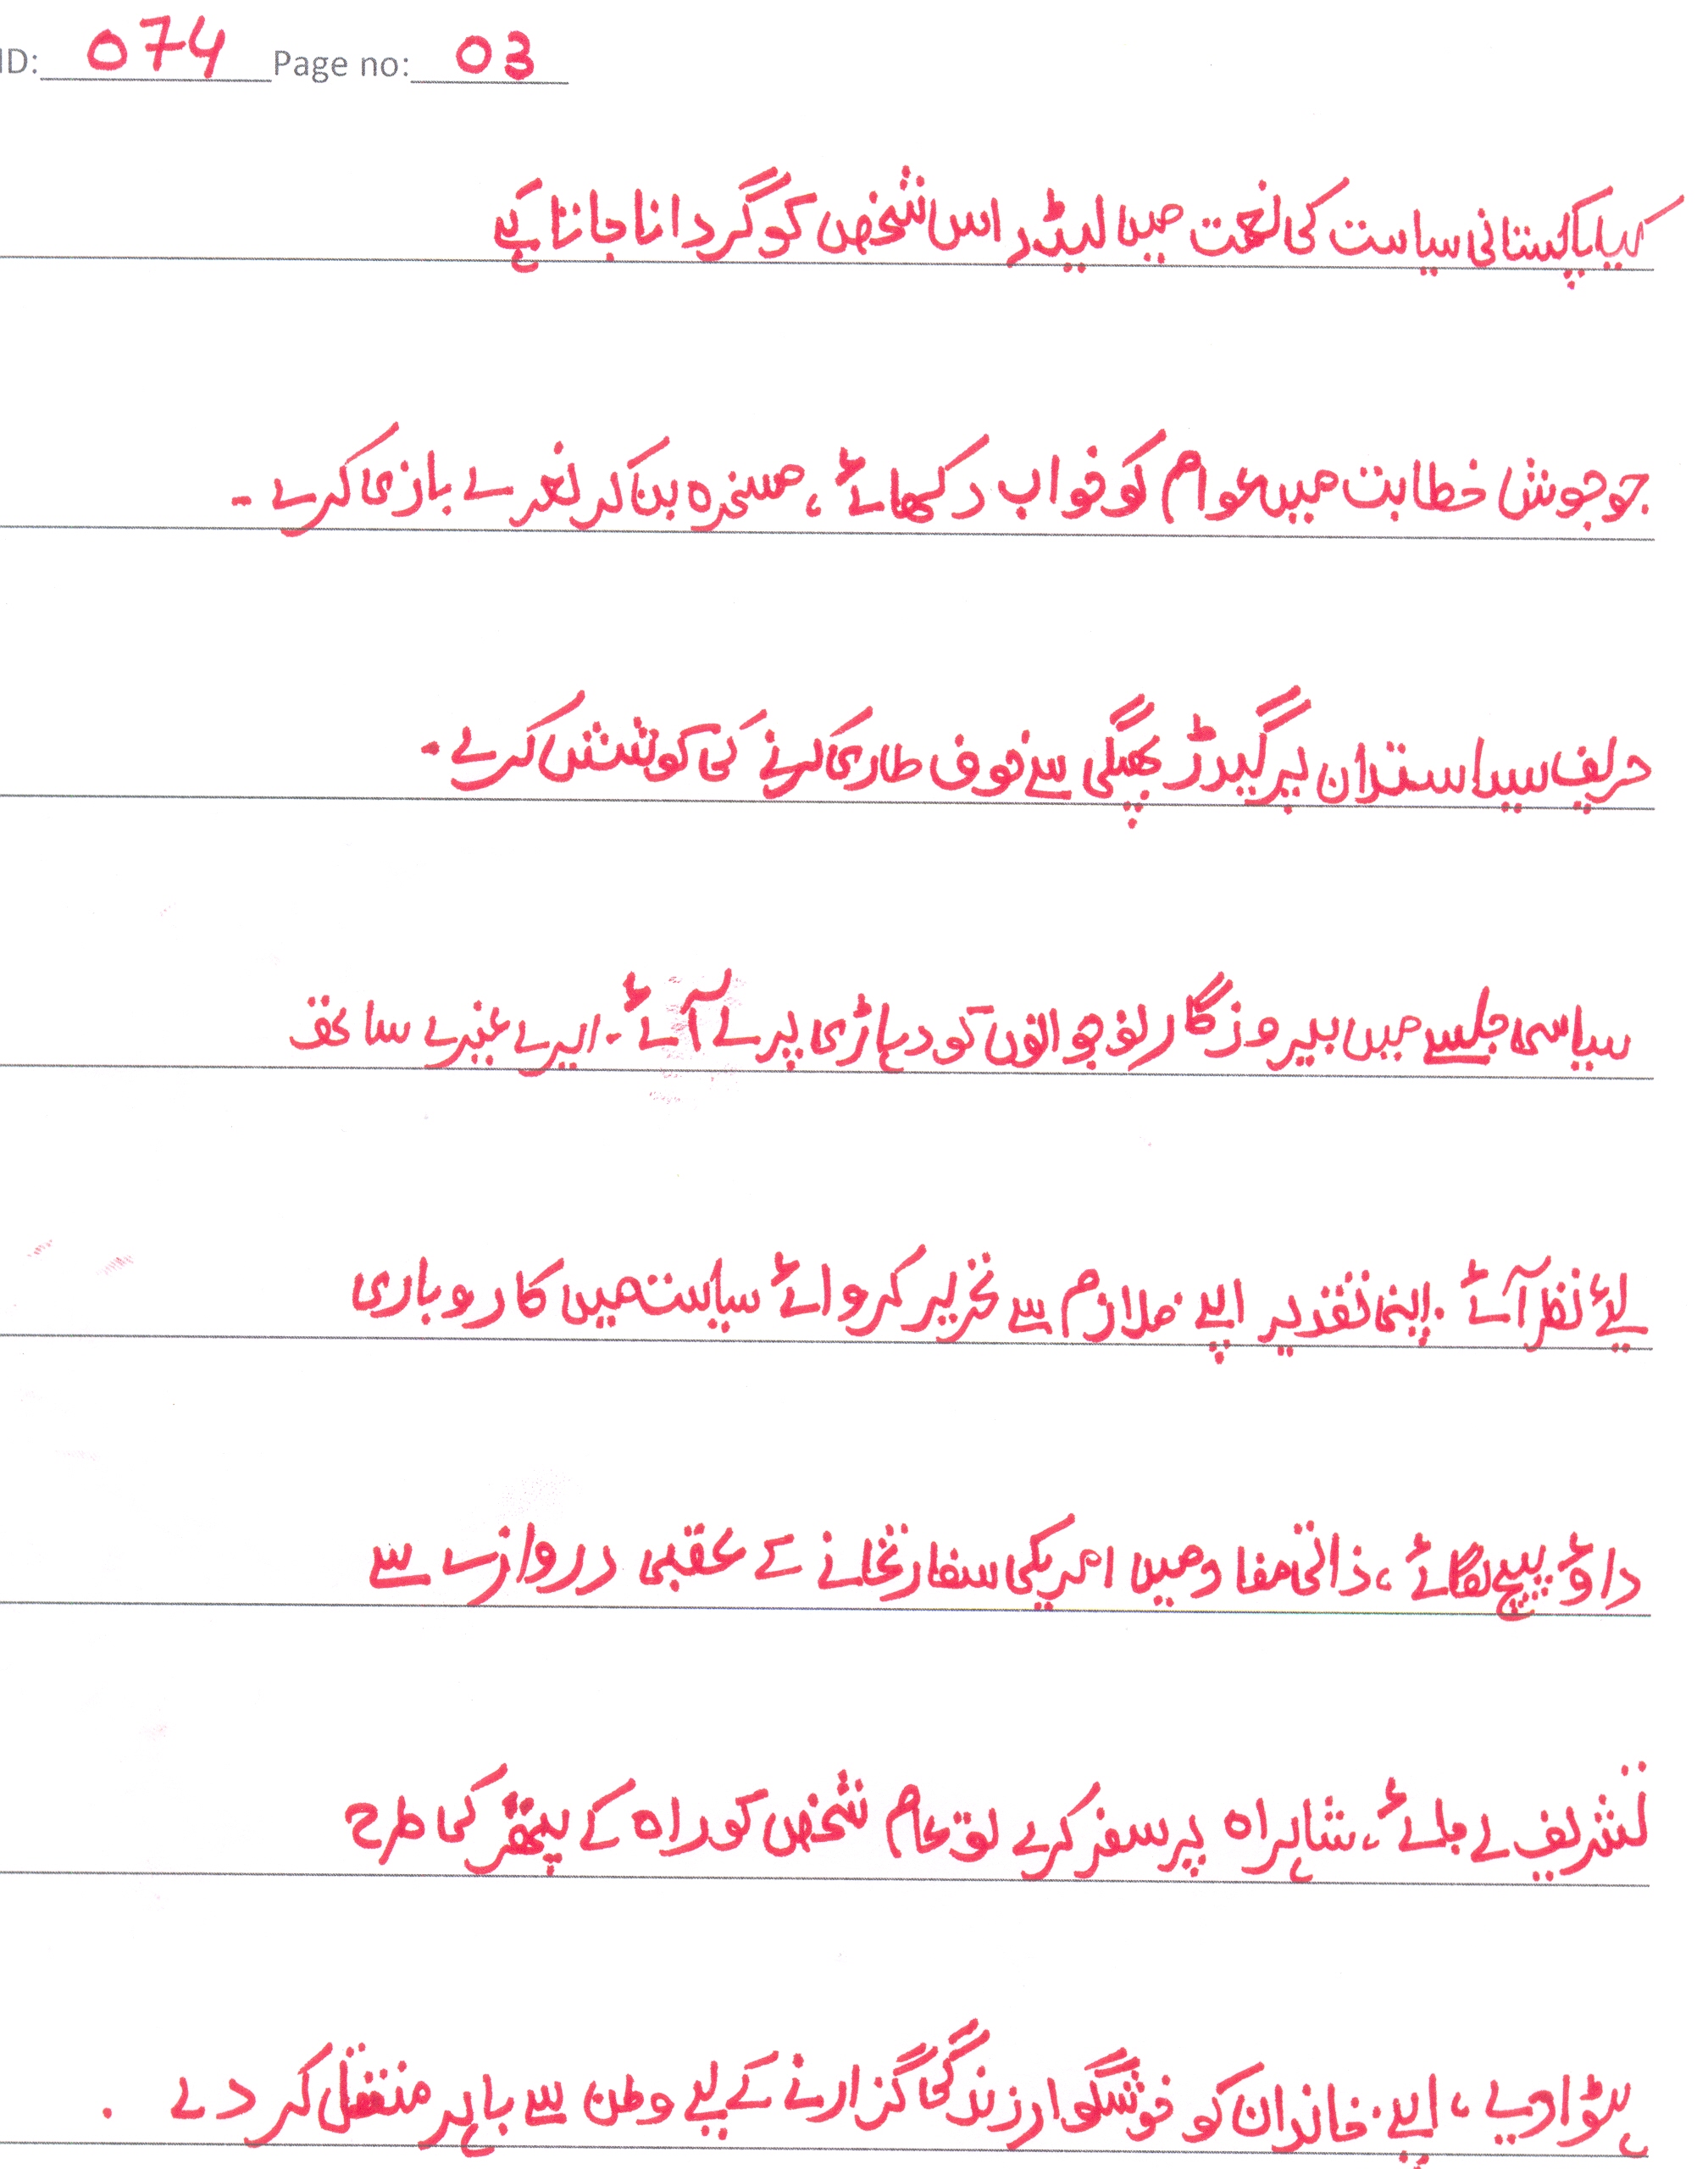 ID: 074 Page no: 03
کیا پاکستانی سیاست کی لغت میں لیڈر اس شخص کو گردانا جاتا ہے
جو جوش خطابت میں عوام کو خواب دکھائے، مسخرہ بن کر نعرے بازی کرے۔
حریف سیاستدان پر گیدڑ بھپکی سے خوف طاری کرنے کی کوشش کرے۔
سیاسی جلسے میں بیروزگار نوجوانوں کو دہاڑی پر لے آئے۔ ایرے غیرے ساتھ
لیے نظر آئے۔ اپنی تقدیر اپنے ملازم سے تحریر کروائے سیاست میں کاروباری
داؤ پیچ لگائے، ذاتی مفاد میں امریکی سفارتخانے کے عقبی دروازے سے
تشریف لے جائے، شاہراہ پر سفر کرے تو عام شخص کو راہ کے پتھر کی طرح
ہٹوا دے، اپنے خاندان کو خوشگوار زندگی گزارنے کے لیے وطن سے باہر منتقل کر دے۔